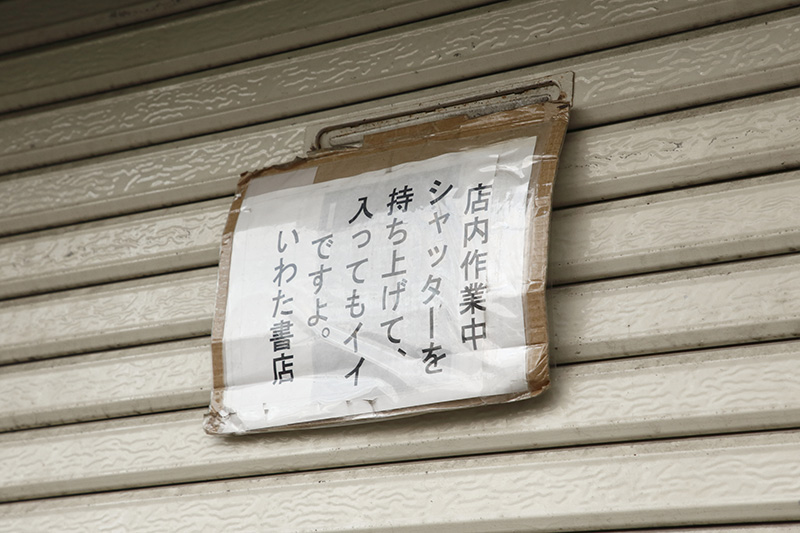 店内作業中
シャッターを
持ち上げて、
入ってもイイ
ですよ。
いわた書店